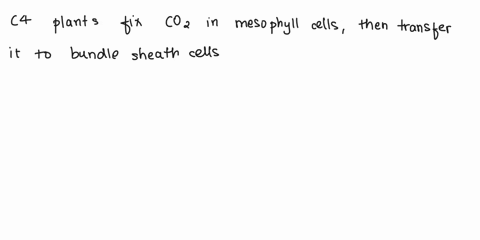 C4 plants fix CO₂ in mesophyll cells, then transfer
it to bundle sheath cells